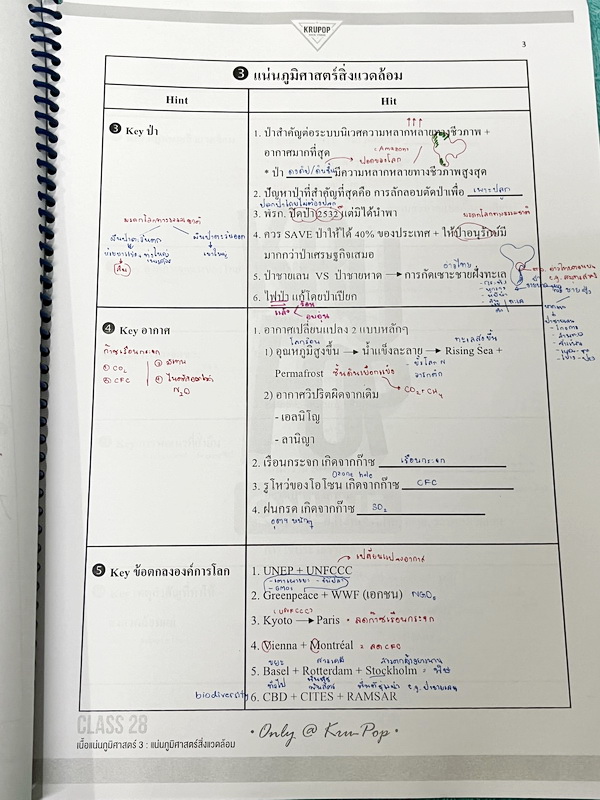 KRUPOP
3
3 แน่นภูมิศาสตร์สิ่งแวดล้อม
Hint
Hit
3 Key ป่า
1. ป่าสำคัญต่อระบบนิเวศความหลากหลายทางชีวภาพ +
อากาศมากที่สุด
(Amazon)
ปอดของโลก
* ป่า ดงดิบ/ดิบชื้น มีความหลากหลายทางชีวภาพสูงสุด
2. ปัญหาป่าที่สำคัญที่สุดคือ การลักลอบตัดป่าเพื่อ เพาะปลูก
3. พรก. ปิดป่า 2532 แต่มิได้นำพา
มรดกโลกทางธรรมชาติ
4. ควร SAVE ป่าให้ได้ 40% ของประเทศ + ให้ป่าอนุรักษ์มี
มากกว่าป่าเศรษฐกิจเสมอ
อ่าวไทย
5. ป่าชายเลน VS ป่าชายหาด → การกัดเซาะชายฝั่งทะเล
6. ไฟป่า แก้โดยป่าเปียก
แล้ง
ร้อน
อบอุ่น
4 Key อากาศ
ก๊าซเรือนกระจก
① CO2
② CFC
③ มีเทน
N2O
1. อากาศเปลี่ยนแปลง 2 แบบหลักๆ
โลกร้อน
ทะเลสูงขึ้น
1) อุณหภูมิสูงขึ้น → น้ำแข็งละลาย → Rising Sea +
- ขั้วโลก N
Permafrost ชั้นดินเยือกแข็ง
CO2+CH4
2) อากาศวิปริตผิดจากเดิม
- เอลนิโญ
- ลานิญา
2. เรือนกระจก เกิดจากก๊าซ เรือนกระจก
Ozone hole
3. รูโหว่ของโอโซน เกิดจากก๊าซ CFC
4. ฝนกรด เกิดจากก๊าซ SO2
5 Key ข้อตกลงองค์การโลก
เปลี่ยนแปลงอากาศ
1. UNEP + UNFCCC
- GMOs
2. Greenpeace + WWF (เอกชน) NGOs
(UNFCCC)
3. Kyoto → Paris • ลดก๊าซเรือนกระจก
4. Vienna + Montréal = ลด CFC
ขยะ
สารเคมี
สารตกค้างยาวนาน
5. Basel + Rotterdam + Stockholm = พิษ
biodiversity
6. CBD + CITES + RAMSAR
CLASS 28
• Only @ KruPop •
เนื้อแน่นภูมิศาสตร์ 3 : แน่นภูมิศาสตร์สิ่งแวดล้อม